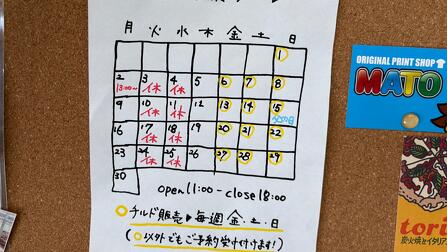 月 火 水 木 金 土 日
1
2 3 4 5 6 7 8
13:00〜 休 休
9 10 11 12 13 14 15
休 休
16 17 18 19 20 21 22
休 休
23 24 25 26 27 28 29
休 休
30
open 11:00 - close 18:00
チルド販売 ▶ 毎週 金.土.日
(○以外でもご予約受け付けます!)
ORIGINAL PRINT SHOP
MATO
tori
炭火焼とイタリア